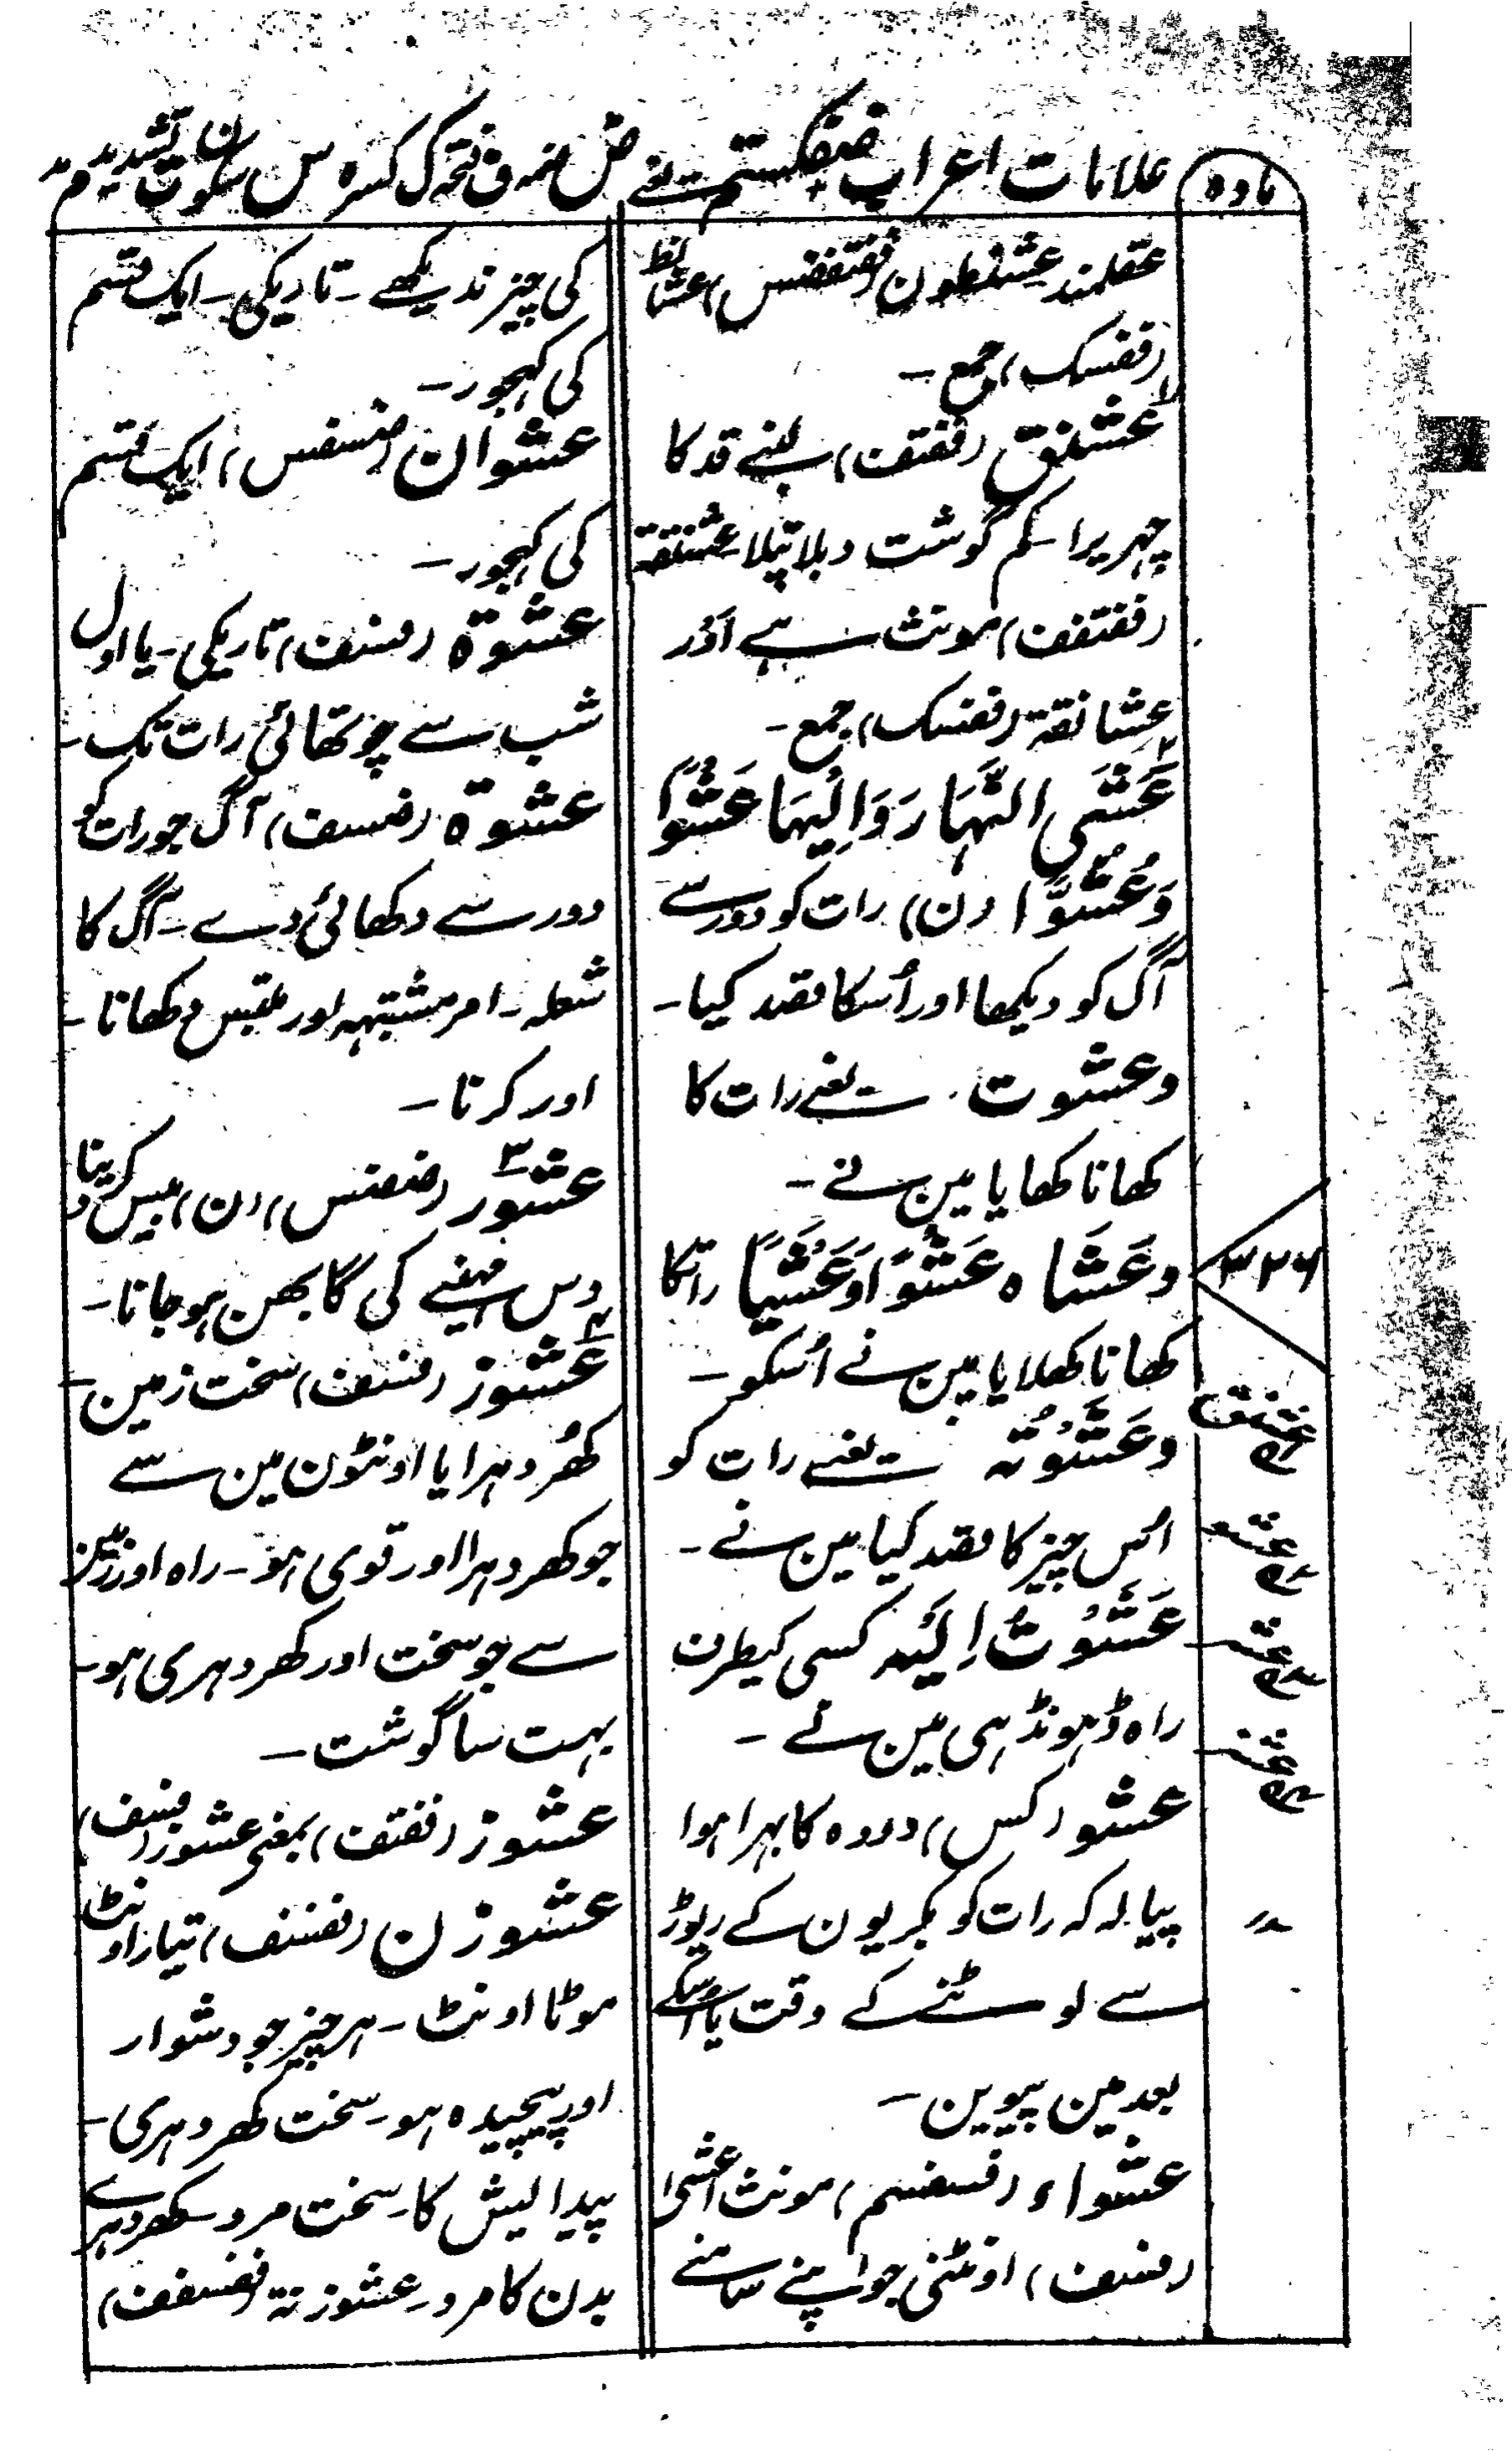 مادہ
علامات اعراب ضفکستم یعنے ض ضمہ ف فتحہ ک کسرہ س سکون ت تشدید م مد
عقلمند عشنطون (ففتففس) عشانط
(ففسک) جمع ـ
عشنق (ففتف) لنبے قد کا
چہریرا ـ کم گوشت دبلا پتلا عشنقة
(ففتفف) مونث ہے اَوْر
عشانقة (ففسک) جمع ـ
عَشَی النَّہَارَ وَاِلَیہَا عَشْوًا
وَعُشُوًّا (ن) رات کو دور سے
آگ کو دیکھا اور اُسکا قصد کیا ـ
وعشوت یعنے رات کا
کھانا کھایا مین نے ـ
وعَشَاہ عَشْوًا وَعَشْیًا راتکا
کھانا کھلایا مین نے اُسکو ـ
وعَشَوْتُہ یعنے رات کو
اُس چیز کا قصد کیا مین نے ـ
عَشَوْتُ اِلَیْہ کسی کیطرف
راہ ڈہونڈہی مین نے ـ
عشو (کس) دودہ کا بہرا ہوا
پیالہ کہ رات کو بکریون کے ریوڑ
سے لوٹنے کے وقت یا اسکے
بعد مین پیوین ـ
عشواء (فسفسم) مونث اعشی
(فسف) اونٹنی جو اپنے سامنے
کی چیز ندیکھے ـ تاریکی ـ ایک قسم
کی کہجور ـ
عشوان (ضسفس) ایک قسم
کی کہجور ـ
عشوة (فسف) تاریکی ـ یا اول
شب سے چوتھائی رات تک ـ
عشوة (ضسف) آگ جو رات کو
دور سے دکھائی دے ـ آگ کا
شعلہ ـ امر مشتبہہ اور ملتبس دکھانا ـ
اور کرنا ـ
عشور (ضضس) (ن) بیس کر دینا
دس مہینے کی گابھن ہوجانا ـ
عشوز (فسف) سخت زمین ـ
کھُردہرا یا اونٹون مین سے
جو کھردہرا اور قوی ہو ـ راہ اور زمین
سے جو سخت اور کھردہری ہو ـ
بہت سا گوشت ـ
عشوز (ففتف) بمعنی عشوز (فسف)
عشوزن (ففسف) تیار اونٹ
موٹا اونٹ ـ ہر چیز جو دشوار
اور پیچیدہ ہو ـ سخت کھردہری ـ
پیدالیش کا ـ سخت مرد ـ کھردہرے
بدن کا مرد ـ عشوزنة (ففسفف)
۳۲۶
عشنق
عشو
عشر
عشز